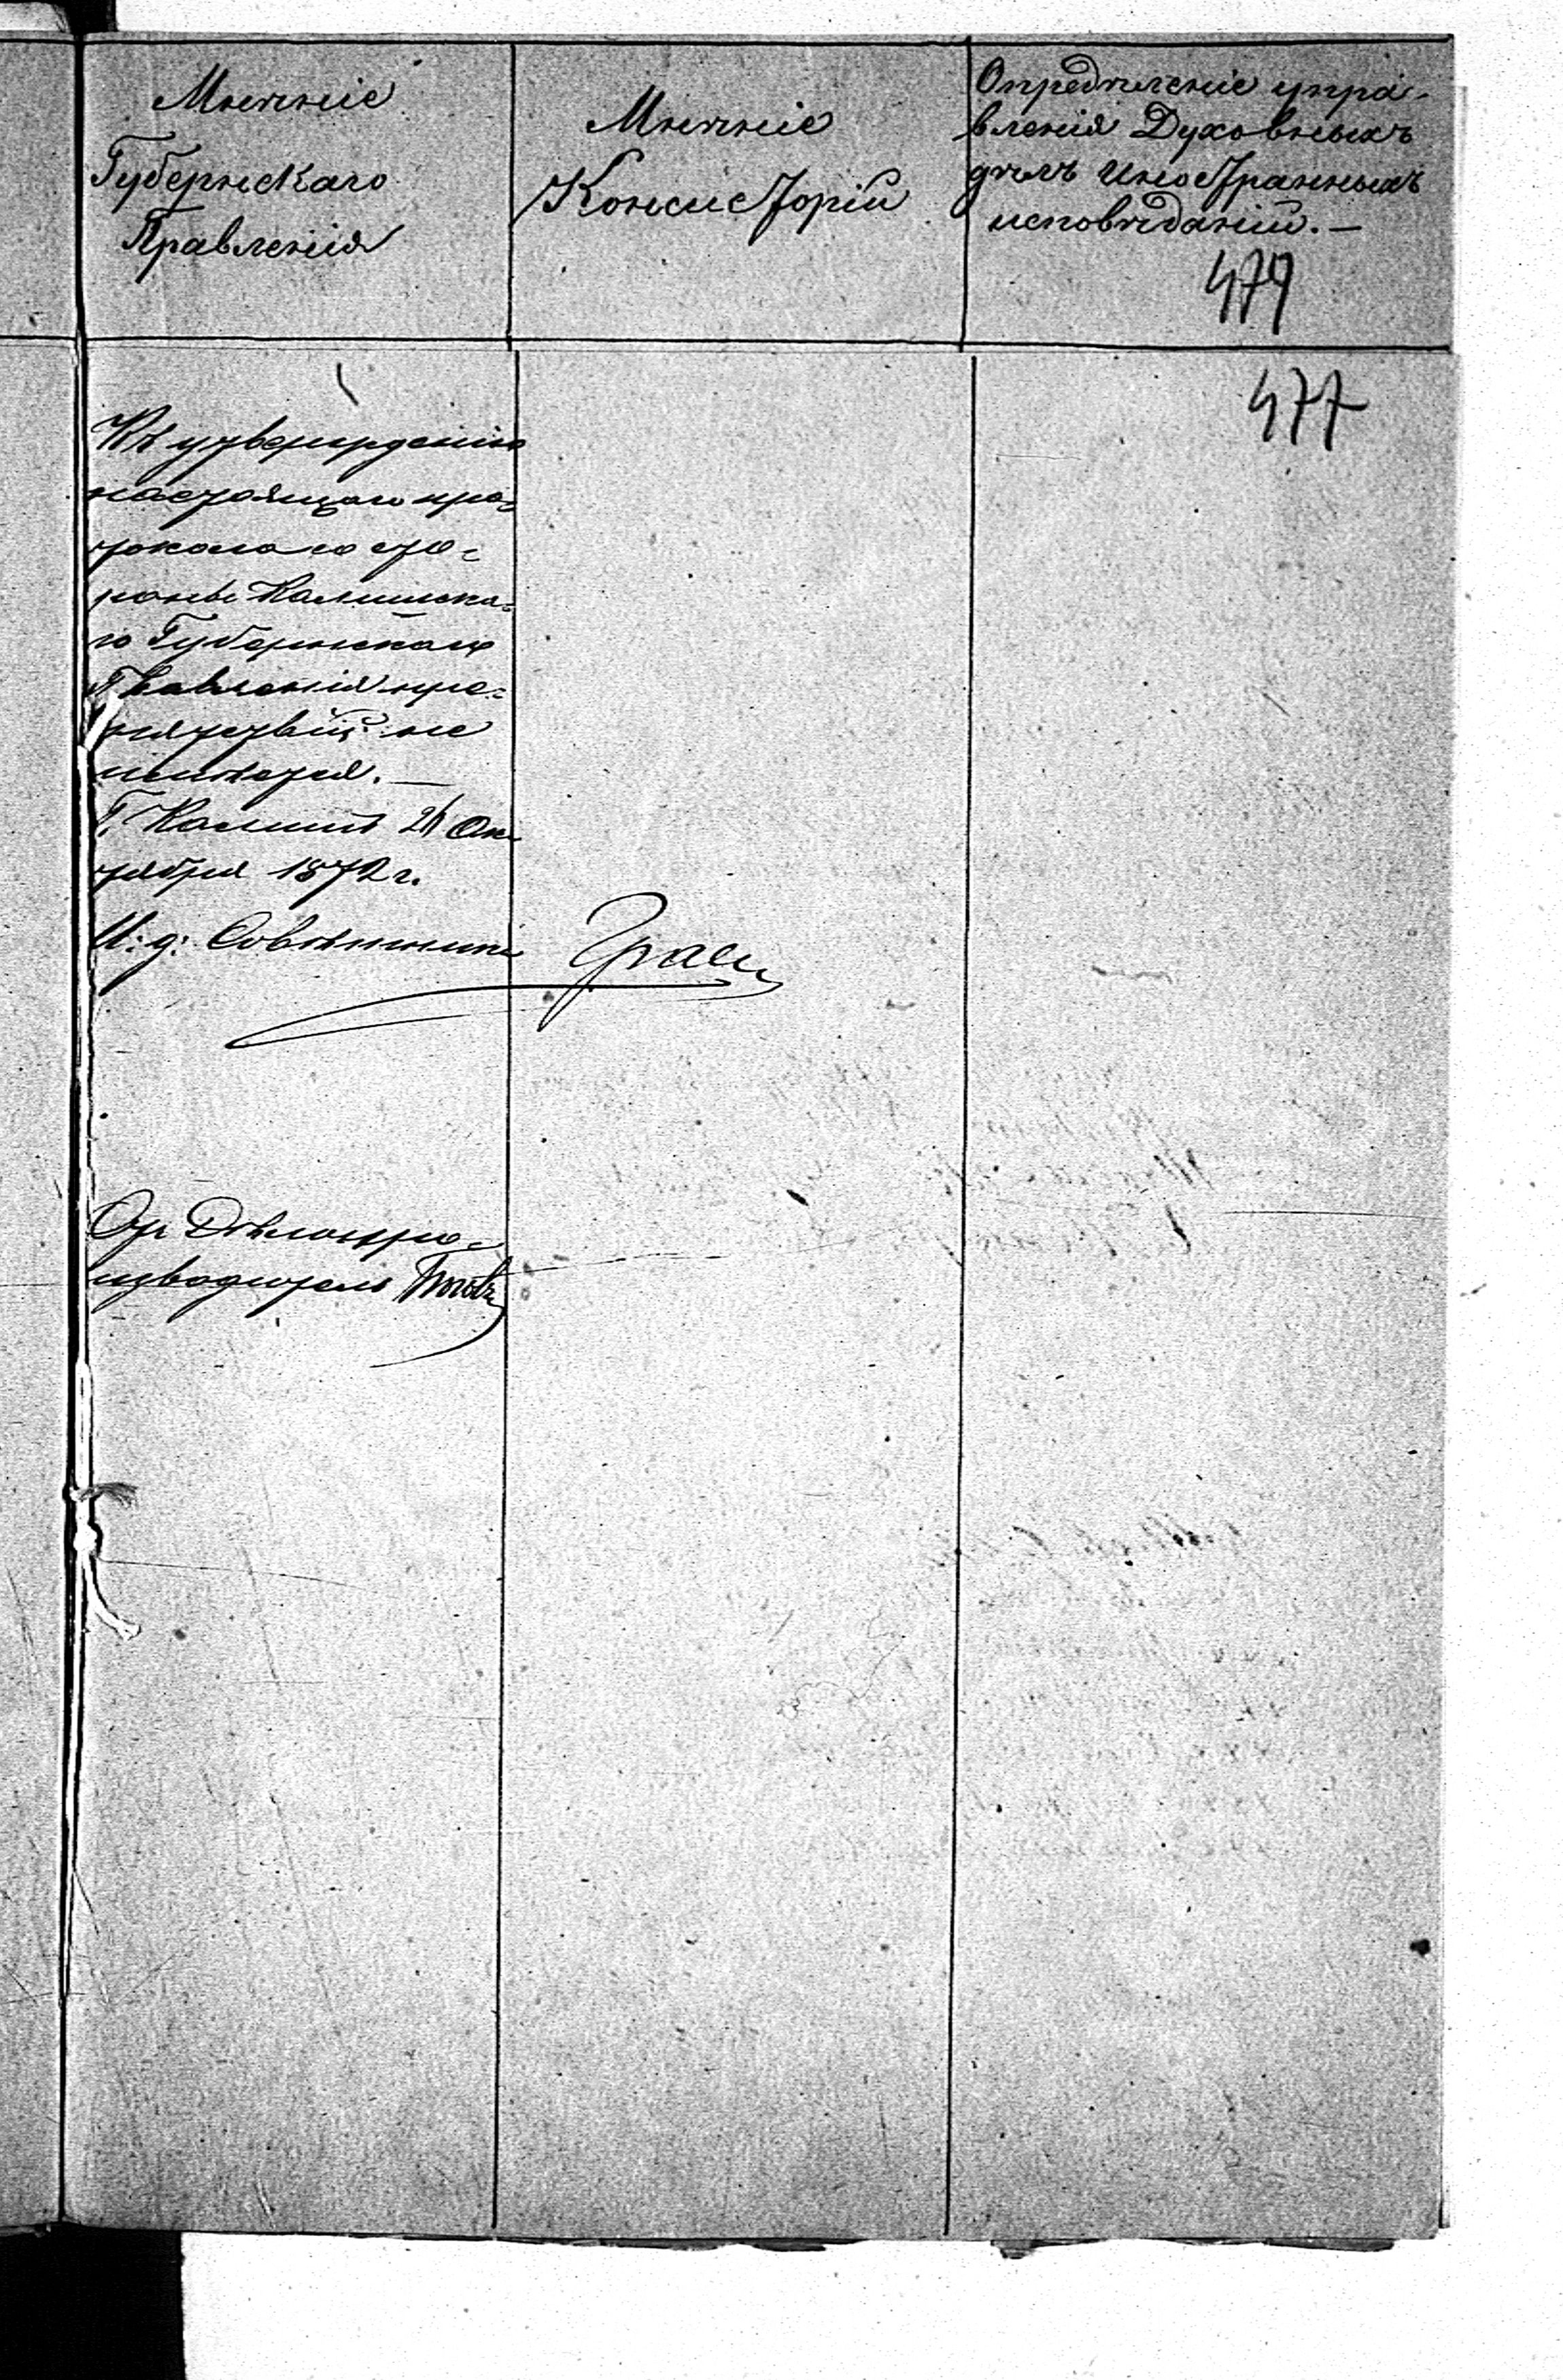 Мнѣніе
Губернскаго
Правленія
Мнѣніе
Консисторіи
Опредѣленіе упра-
вленія Духовныхъ
дѣлъ иностранныхъ
исповѣданій.—
479
477
Къ утвержденію
настоящаго про-
токола со сто-
роны Калишска-
го Губернскаго
Правленія пре-
пятствій не
имѣется.—
Г. Калишъ 26 Ок-
тября 1872 г.
И: д: Совѣтника
Ст Дѣлопро-
изводитель